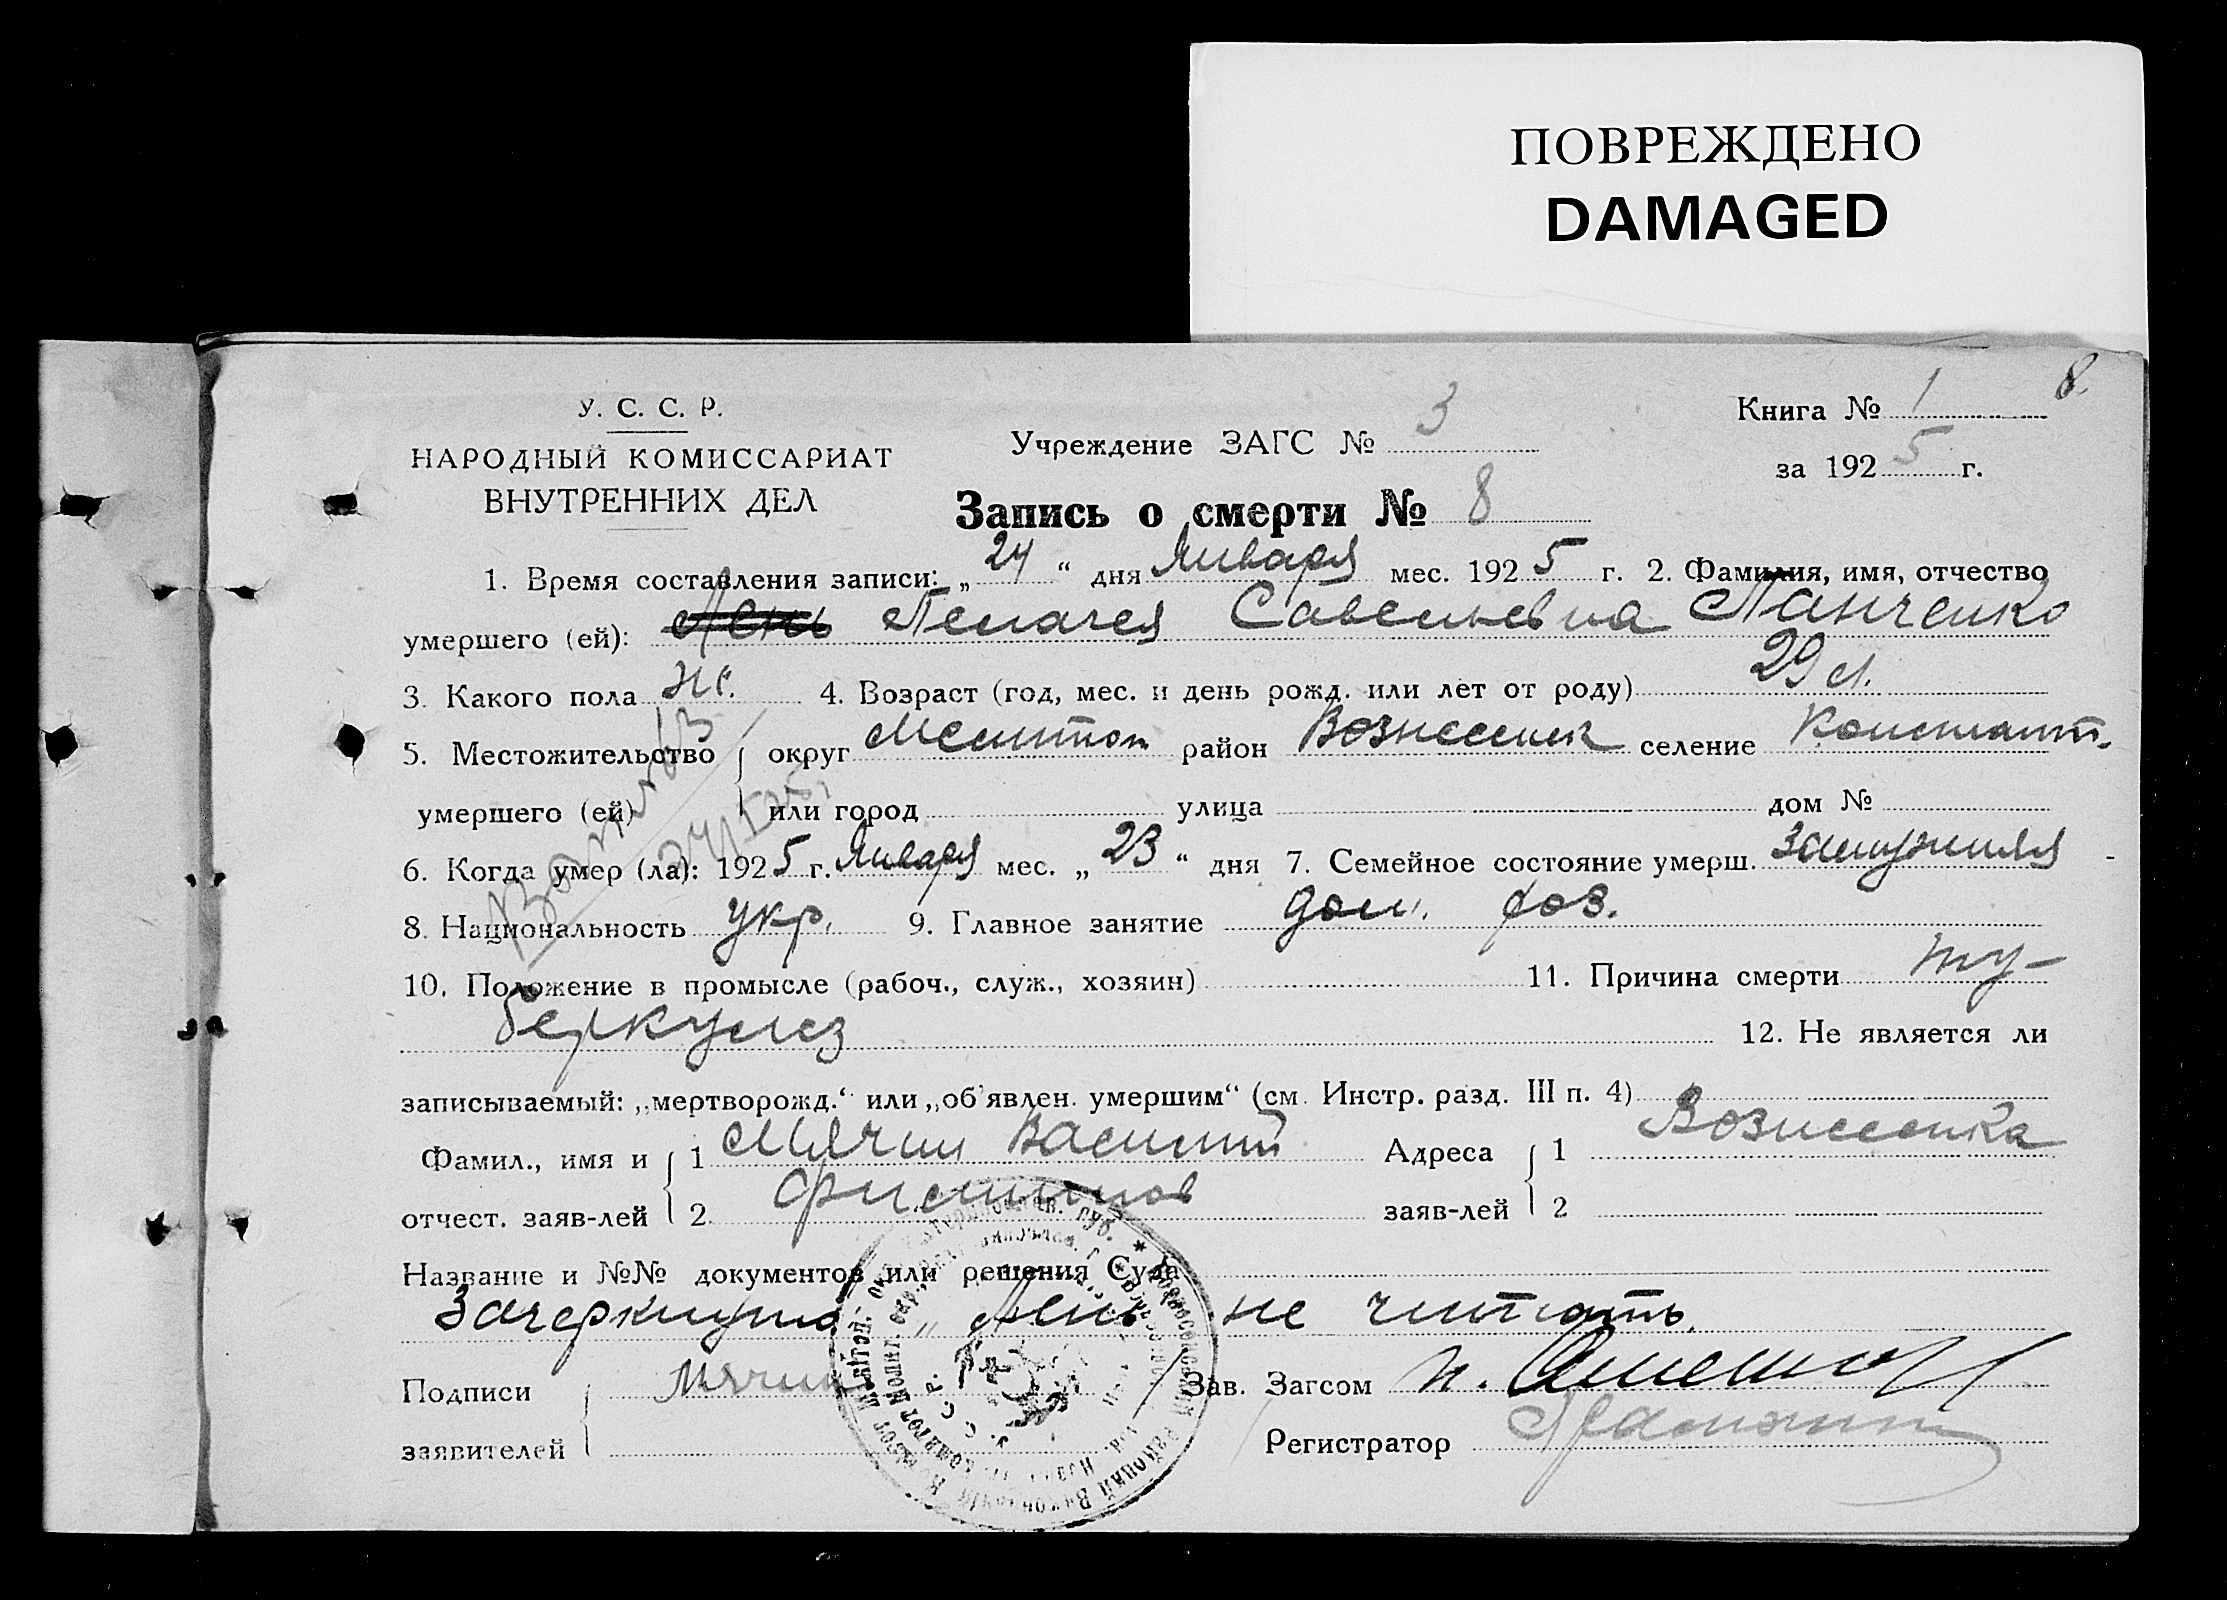 ПОВРЕЖДЕНО
DAMAGED
8.
У. С. С. Р.
НАРОДНЫЙ КОМИССАРИАТ
ВНУТРЕННИХ ДЕЛ
Учреждение ЗАГС № 3
Книга № 1
за 1925 г.
Запись о смерти № 8
1. Время составления записи: „24“ дня Января мес. 1925 г. 2. Фамилия, имя, отчество
умершего (ей): Лень Пелагея Савельевна Панченко
3. Какого пола ж. 4. Возраст (год, мес. и день рожд. или лет от роду) 29 л.
5. Местожительство округ Мелитоп район Вознесенск селение Констант.
умершего (ей) или город улица дом №
6. Когда умер (ла): 1925 г. Января мес. „23“ дня 7. Семейное состояние умерш. Замужняя
8. Национальность укр. 9. Главное занятие дом. хоз.
10. Положение в промысле (рабоч., служ., хозяин) 11. Причина смерти ту-
беркулез 12. Не является ли
записываемый: „мертворожд.“ или „об'явлен. умершим“ (см. Инстр. разд. III п. 4)
Фамил., имя и 1 Мячин Василий Адреса 1 Вознесенка
отчест. заяв-лей 2 Филиппов заяв-лей 2
Название и №№ документов или решения Суда
Зачеркнуто „Лень не читать.
Подписи Мячин Зав. Загсом
заявителей Регистратор